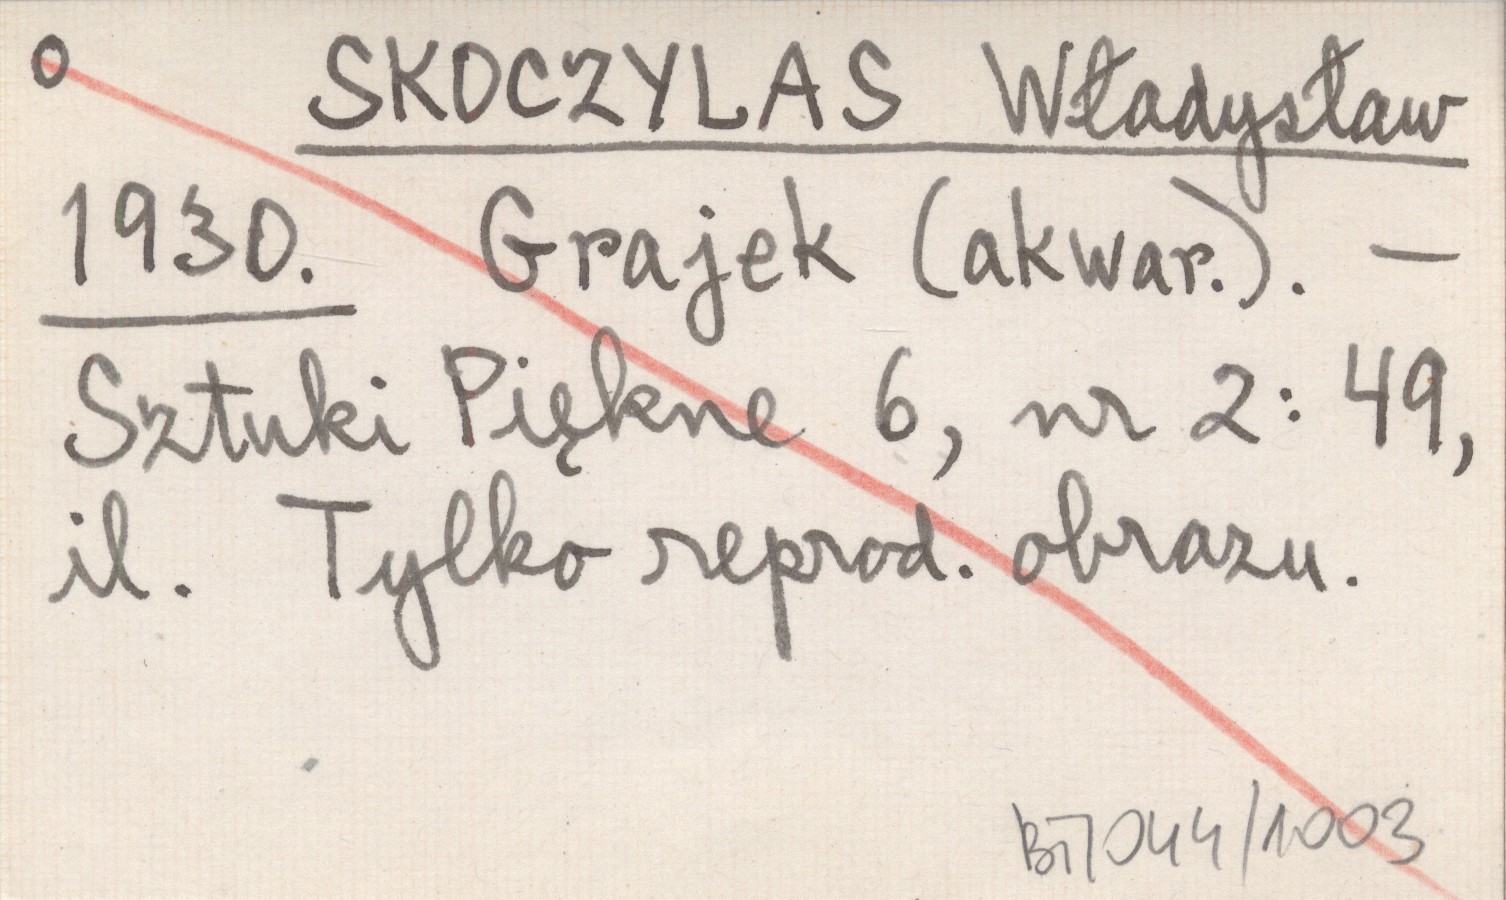 o SKOCZYLAS Władysław
1930. Grajek (akwar.). —
Sztuki Piękne 6, nr 2: 49,
il. Tylko reprod. obrazu.
BT/044/1003